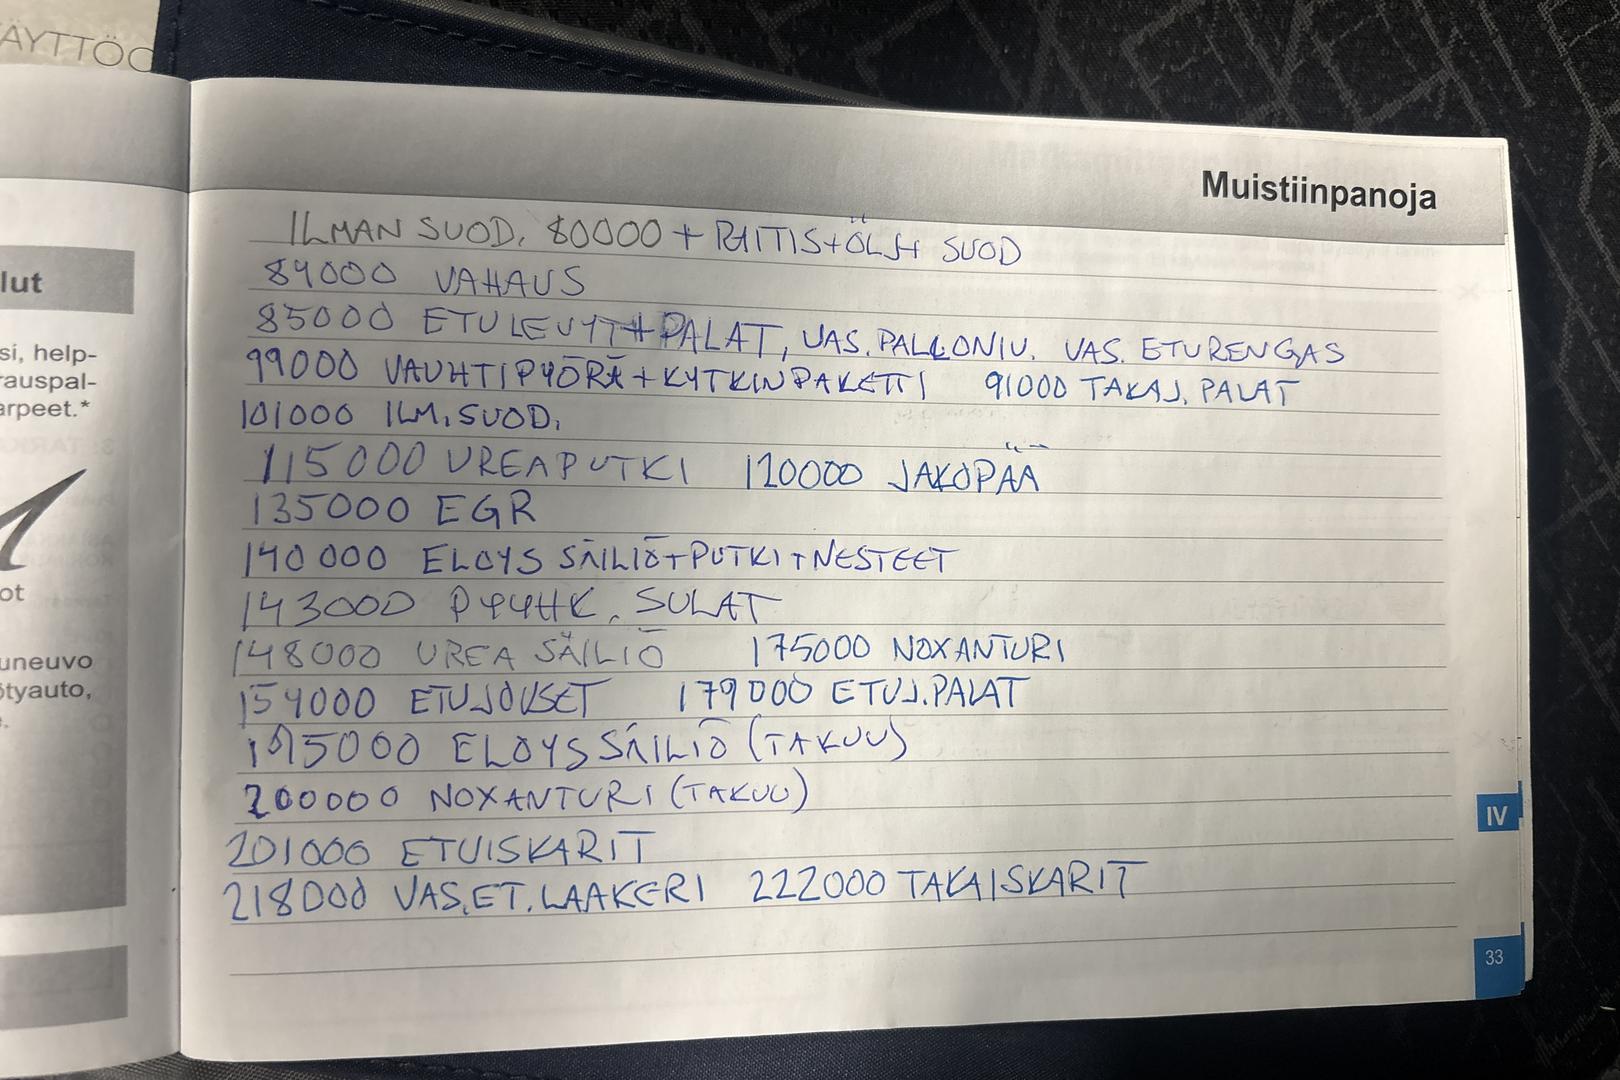 ÄYTTÖO
lut
si, help-
rauspal-
arpeet.*
ot
uneuvo
ötyauto,
Muistiinpanoja
ILMAN SUOD. 80000 + RAITIS+ÖLJ+ SUOD
84000 VAHAUS
85000 ETULEVYT+PALAT, VAS. PALLONIV. VAS. ETURENGAS
99000 VAUHTIPYÖRÄ+KYTKINPAKETTI 91000 TAKAJ. PALAT
101000 ILM.SUOD.
115000 UREAPUTKI 120000 JAKOPÄÄ
135000 EGR
140000 ELOYS SÄILIÖ+PUTKI+NESTEET
143000 PYYHK. SULAT
148000 UREA SÄILIÖ 175000 NOXANTURI
154000 ETUJOUSET 179000 ETUJ.PALAT
195000 ELOYS SÄILIÖ (TAKUU)
200000 NOXANTURI (TAKUU)
201000 ETUISKARIT
218000 VAS.ET.LAAKERI 222000 TAKAISKARIT
IV
33